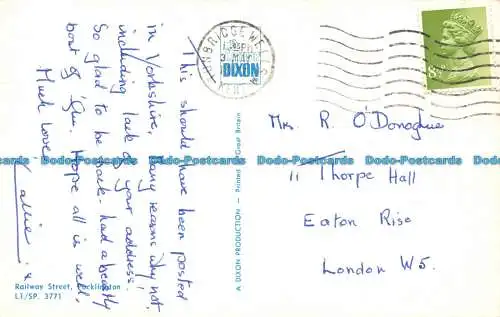 This should have been posted
in Yorkshire, many reasons why not,
including lack of your address.
So glad to be back - had a beastly
bout of 'flu. Hope all is well,
Much love
Railway Street, Pocklington
L1/SP. 3771
A DIXON PRODUCTION – Printed in Great Britain
TUNBRIDGE WELLS
3 MAY
KENT
DIXON
8½
Mrs R. O'Donoghue
11 Thorpe Hall
Eaton Rise
London W5.
Dodo-Postcards Dodo-Postcards Dodo-Postcards Dodo-Postcards Dodo-Postcards